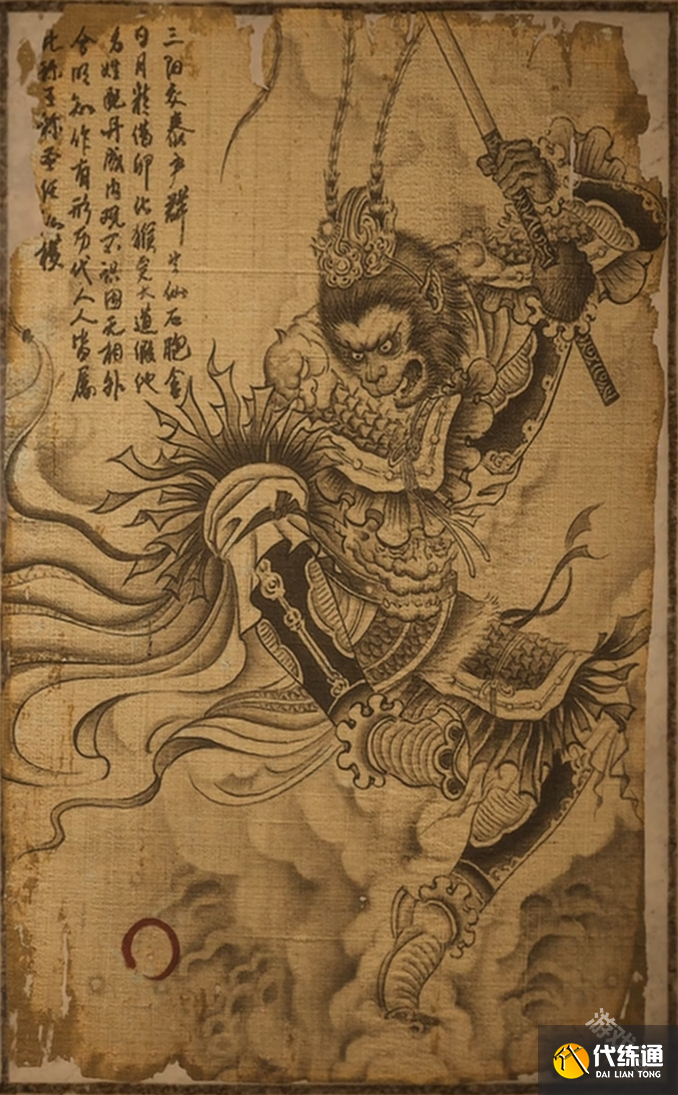 三阳交泰产群生仙石胞含
日月精借卵化猴完大道假他
名姓配丹成内观不识因无相外
合明知作有形历代人人皆属
此称王称圣任纵横
游戏
代练通
DAI LIAN TONG